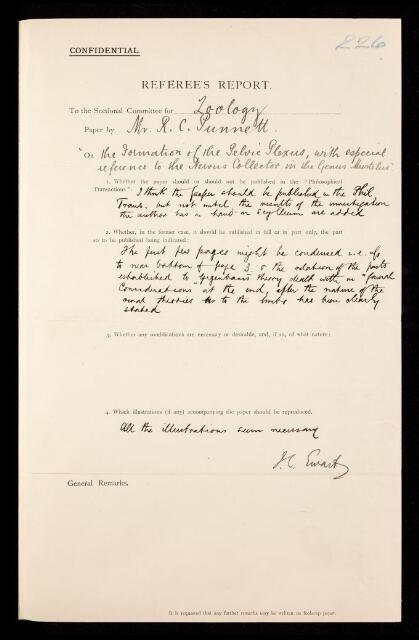 226
CONFIDENTIAL.
REFEREE'S REPORT.
To the Sectional Committee for Zoology
Paper by Mr. R. C. Punnett.
"On the Formation of the Pelvic Plexus, with especial
reference to the Nervus Collector in the Genus Mustelus"
1. Whether the paper should or should not be published in the "Philosophical
Transactions": I think the paper should be published in the Phil.
Trans. but not until the results of the investigation
the author has in hand on Scyllium are added
2. Whether, in the former case, it should be published in full or in part only, the part
so to be published being indicated:
The first few pages might be condensed i.e. up
to near bottom of page 3 & the relation of the facts
established to Gegenbaur's theory dealt with in "general
considerations" at the end, after the nature of the
theories as to the limbs has been clearly
stated
3. Whether any modifications are necessary or desirable, and, if so, of what nature:
4. Which illustrations (if any) accompanying the paper should be reproduced.
All the illustrations seem necessary
J. C. Ewart
General Remarks.
It is requested that any further remarks may be written on foolscap paper.